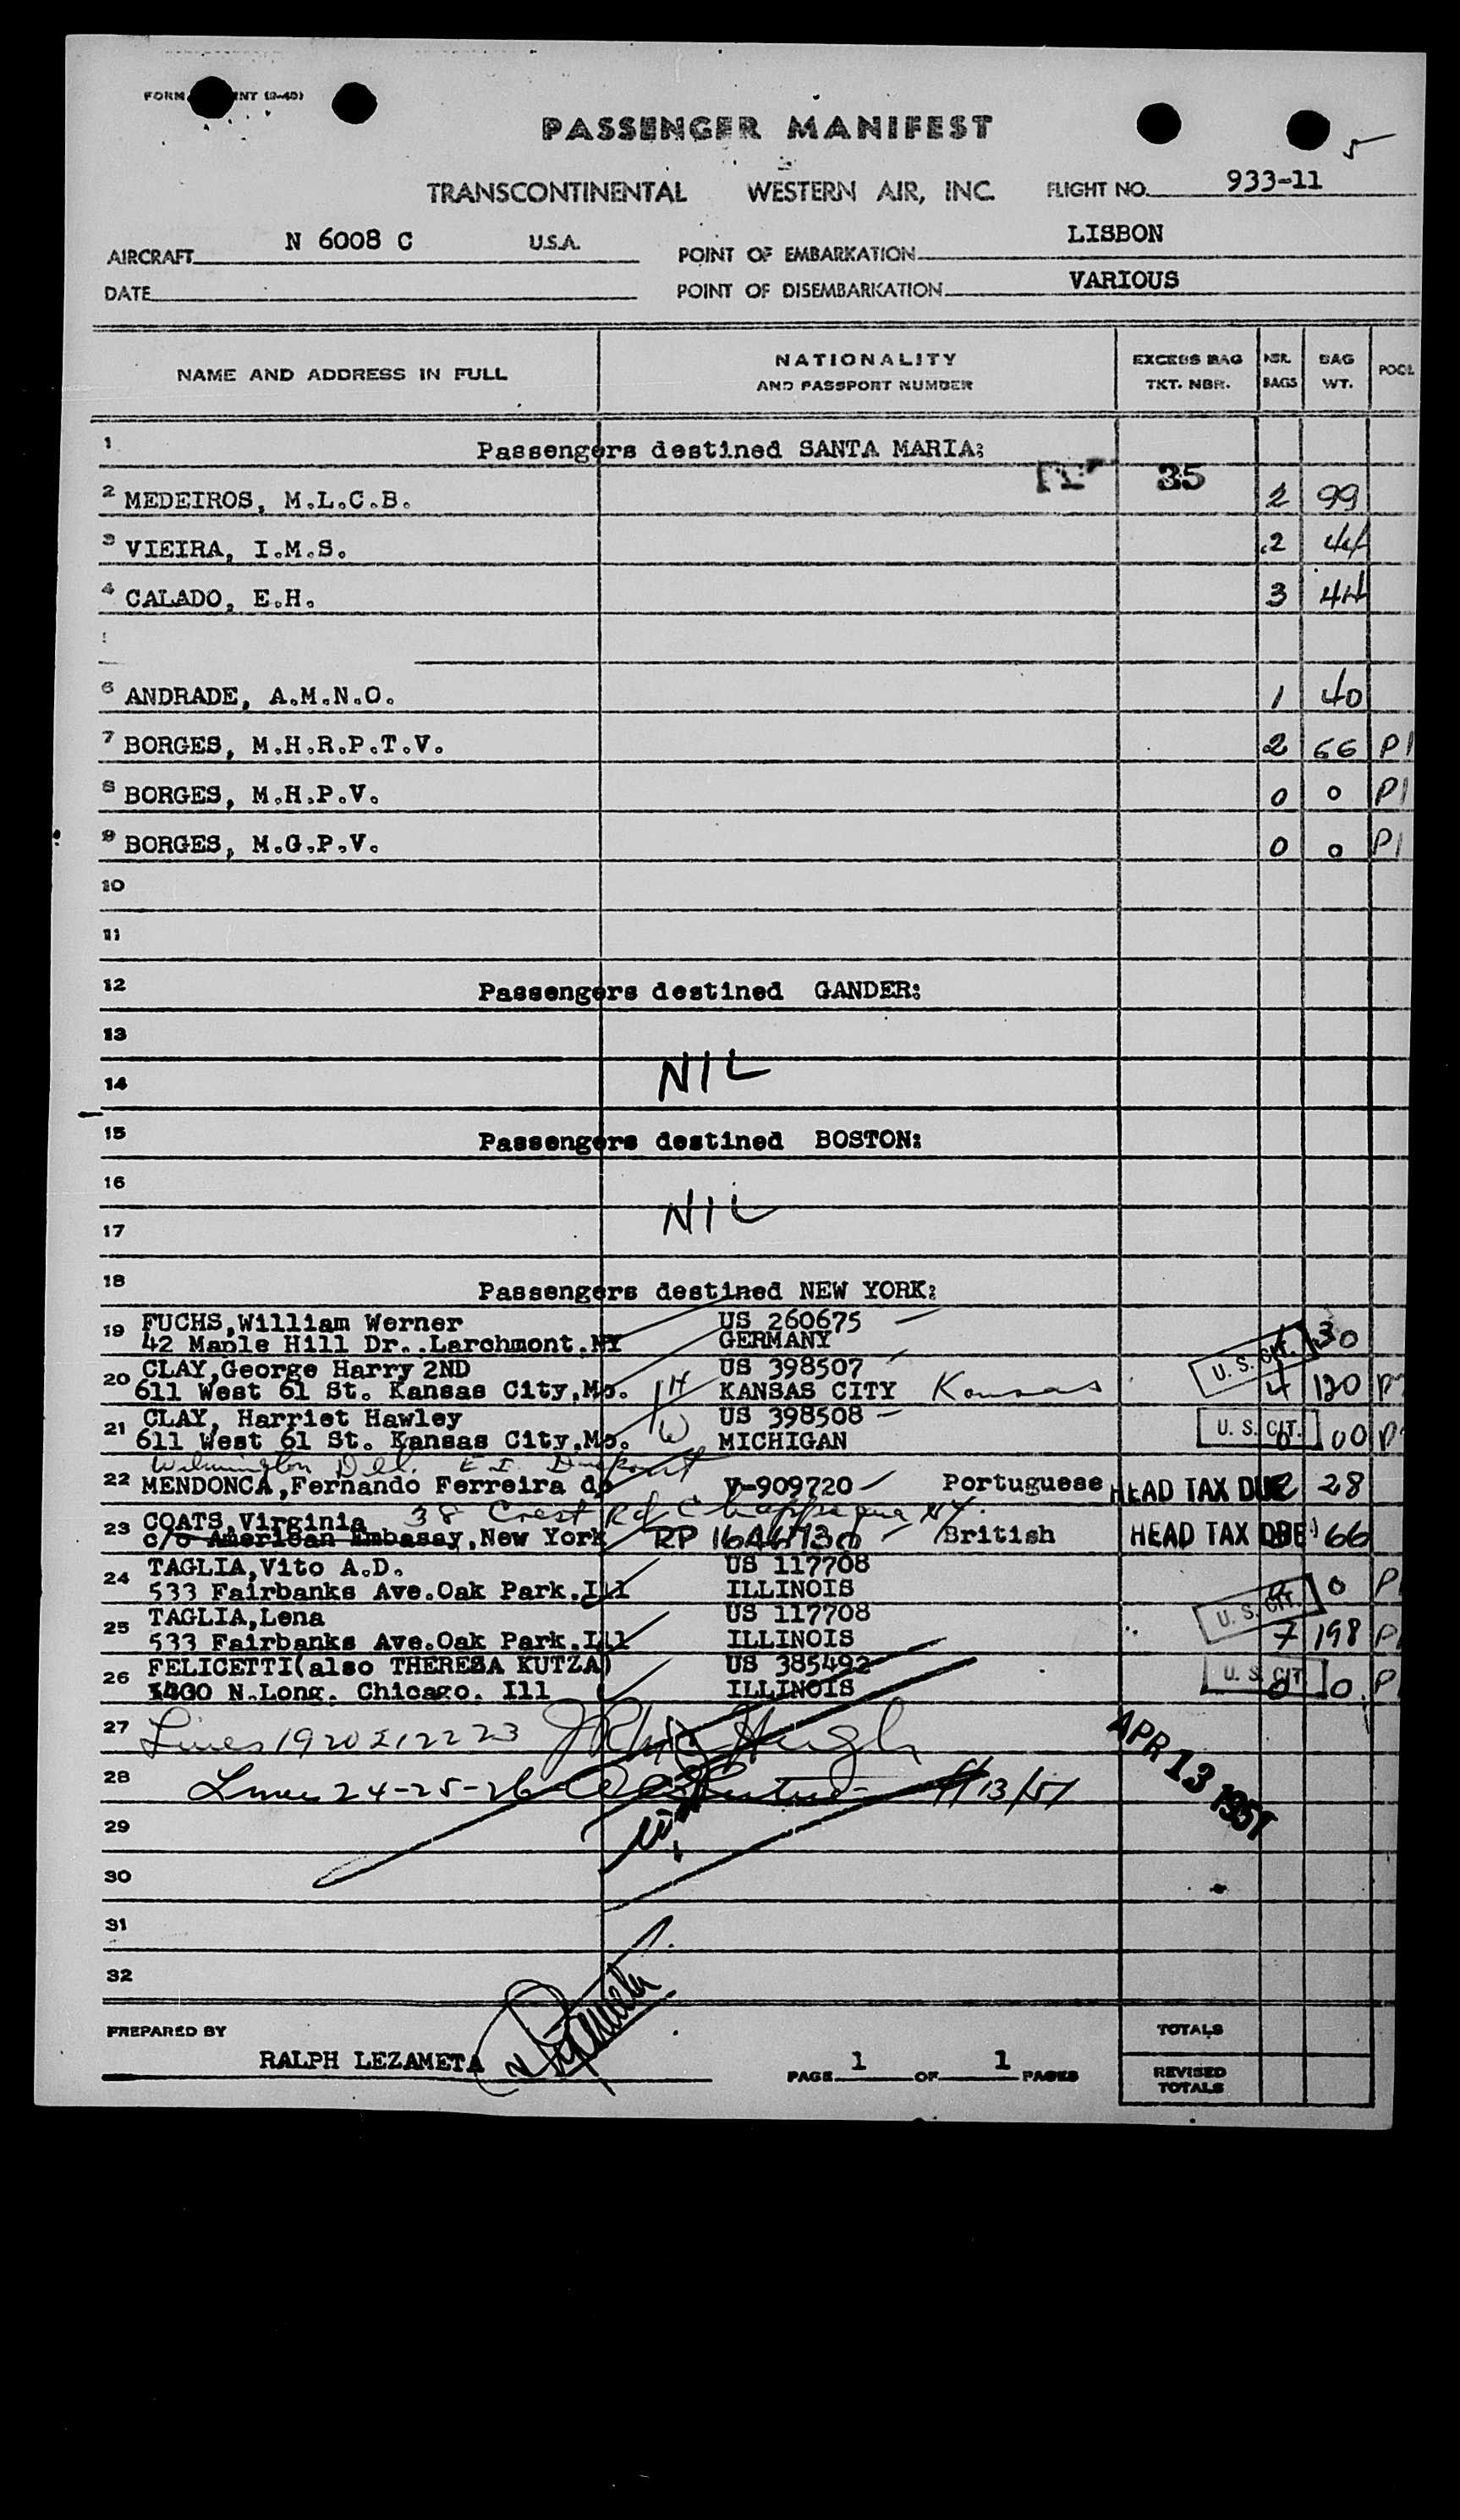 PASSENGER MANIFEST
5
TRANSCONTINENTAL WESTERN AIR, INC. FLIGHT NO. 933-11
AIRCRAFT N 6008 C U.S.A. POINT OF EMBARKATION LISBON
DATE POINT OF DISEMBARKATION VARIOUS
NAME AND ADDRESS IN FULL NATIONALITY AND PASSPORT NUMBER EXCESS BAG TKT. NBR. NBR. BAGS BAG WT. POOL
1 Passengers destined SANTA MARIA:
35
2 MEDEIROS, M.L.C.B. 2 99
3 VIEIRA, I.M.S. 2 44
4 CALADO, E.H. 3 44
6 ANDRADE, A.M.N.O. 1 40
7 BORGES, M.H.R.P.T.V. 2 66 P1
8 BORGES, M.H.P.V. 0 0 P1
9 BORGES, M.G.P.V. 0 0 P1
10
11
12 Passengers destined GANDER:
13
14 NIL
15 Passengers destined BOSTON:
16
NIL
17
18 Passengers destined NEW YORK:
19 FUCHS,William Werner US 260675
42 Maple Hill Dr..Larchmont.NY GERMANY U. S. CIT. 30
20 CLAY,George Harry 2ND US 398507
611 West 61 St. Kansas City,Mo. H KANSAS CITY Kansas 4 120
21 CLAY, Harriet Hawley US 398508
611 West 61 St. Kansas City,Mo. W MICHIGAN U. S. CIT. 00
Wilmington Del. E I Dupont
22 MENDONCA,Fernando Ferreira do V-909720 Portuguese HEAD TAX DUE 2 28
23 COATS,Virginia 38 Crest Rd Chappaqua NY.
c/o American Embassy,New York RP British HEAD TAX DUE 66
24 TAGLIA,Vito A.D. US 117708
533 Fairbanks Ave.Oak Park.Ill ILLINOIS 0 P
25 TAGLIA,Lena US 117708 U. S. CIT.
533 Fairbanks Ave.Oak Park.Ill ILLINOIS 7 198 P
26 FELICETTI(also THERESA KUTZA) US 385492
1400 N.Long. Chicago. Ill ILLINOIS U. S. CIT 0 0 P
27 Lines 19 20 21 22 23
APR 13 1951
28 Lines 24-25-26 4/13/51
29
30
31
32
PREPARED BY RALPH LEZAMETA
PAGE 1 OF 1 PAGES
TOTALS
REVISED TOTALS